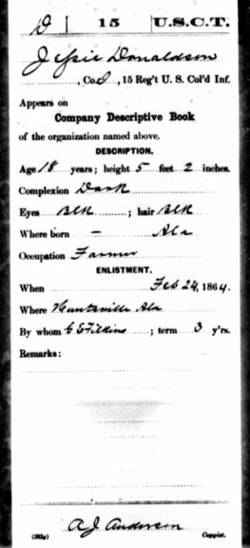 D 15 U.S.C.T.
Jessie Donaldson
, Co. D, 15 Reg't U. S. Col'd Inf.
Appears on
Company Descriptive Book
of the organization named above.
DESCRIPTION.
Age 18 years; height 5 feet 2 inches.
Complexion Dark
Eyes Blk ; hair Blk
Where born - Ala
Occupation Farmer
ENLISTMENT.
When Feb 24, 1864.
Where Huntsville Ala
By whom C E Filkins ; term 3 y'rs.
Remarks:
A J Anderson
Copyist.